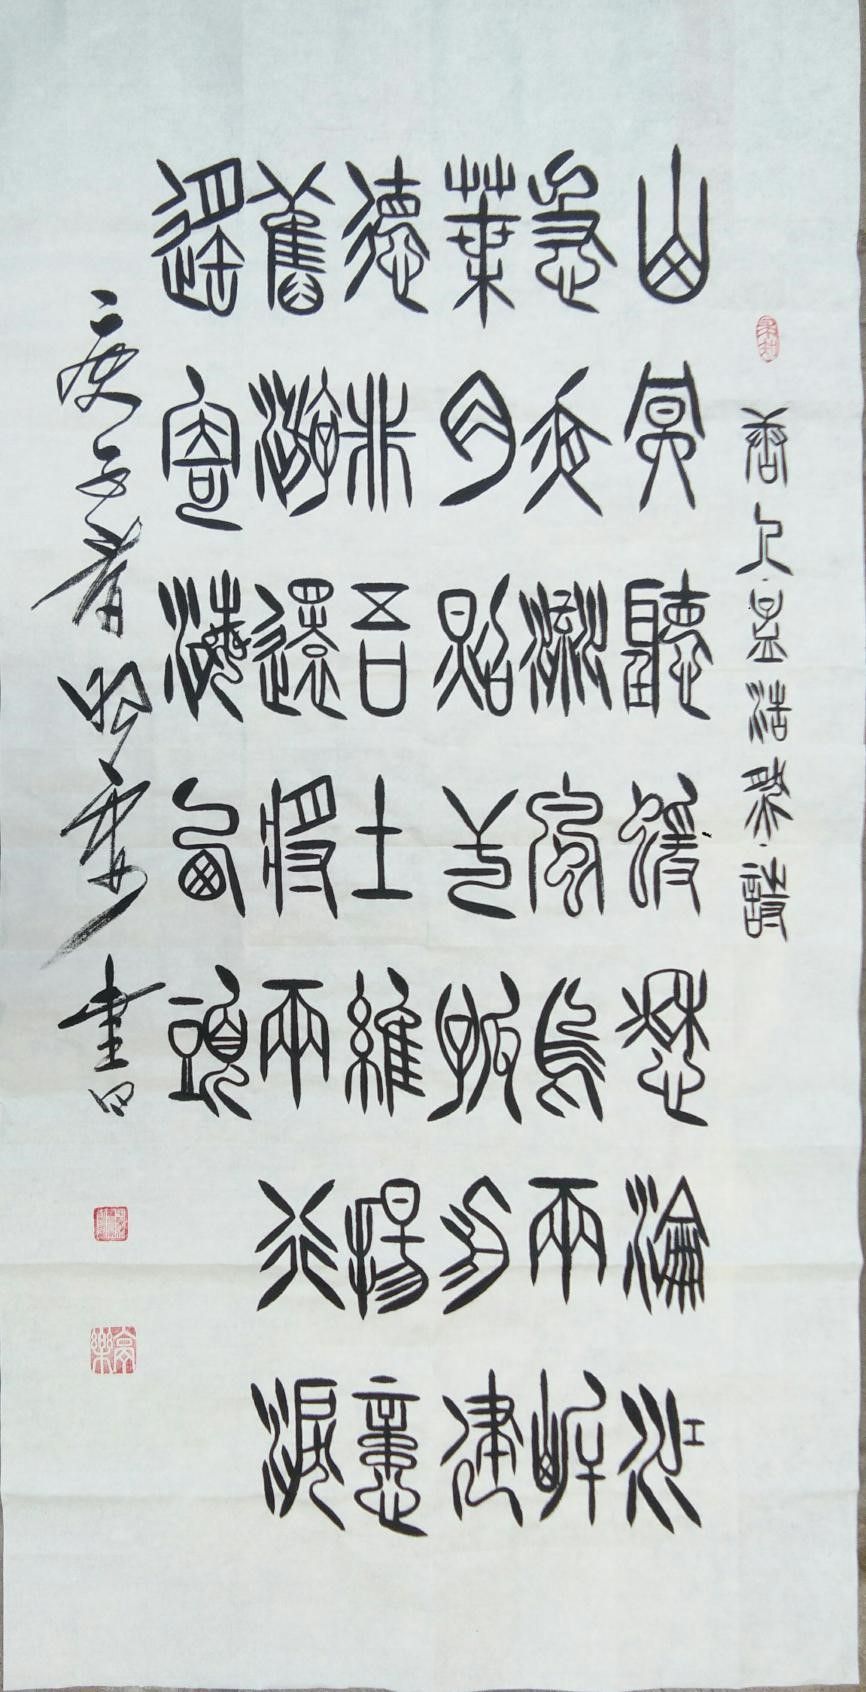 唐人孟浩然詩
山冥聽猨愁滄江
急夜流風鳴兩岸
葉月照一孤舟建
德非吾土維揚憶
舊游還將兩行淚
遙寄海西頭
庚子春 書